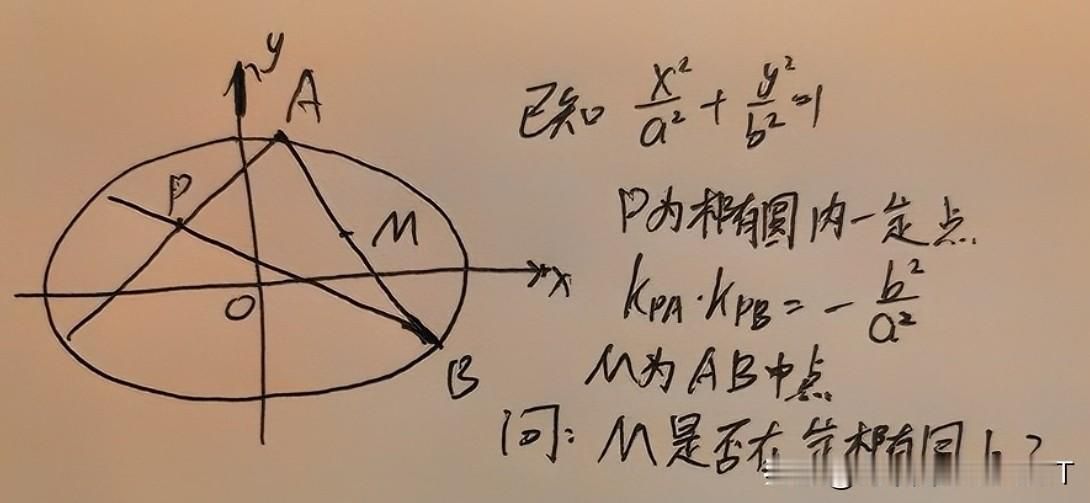 y
A
P
M
O
x
B
已知 x²/a² + y²/b² = 1
P为椭圆内一定点.
k_PA · k_PB = - b²/a²
M为AB中点.
问: M是否在定椭圆上?
T